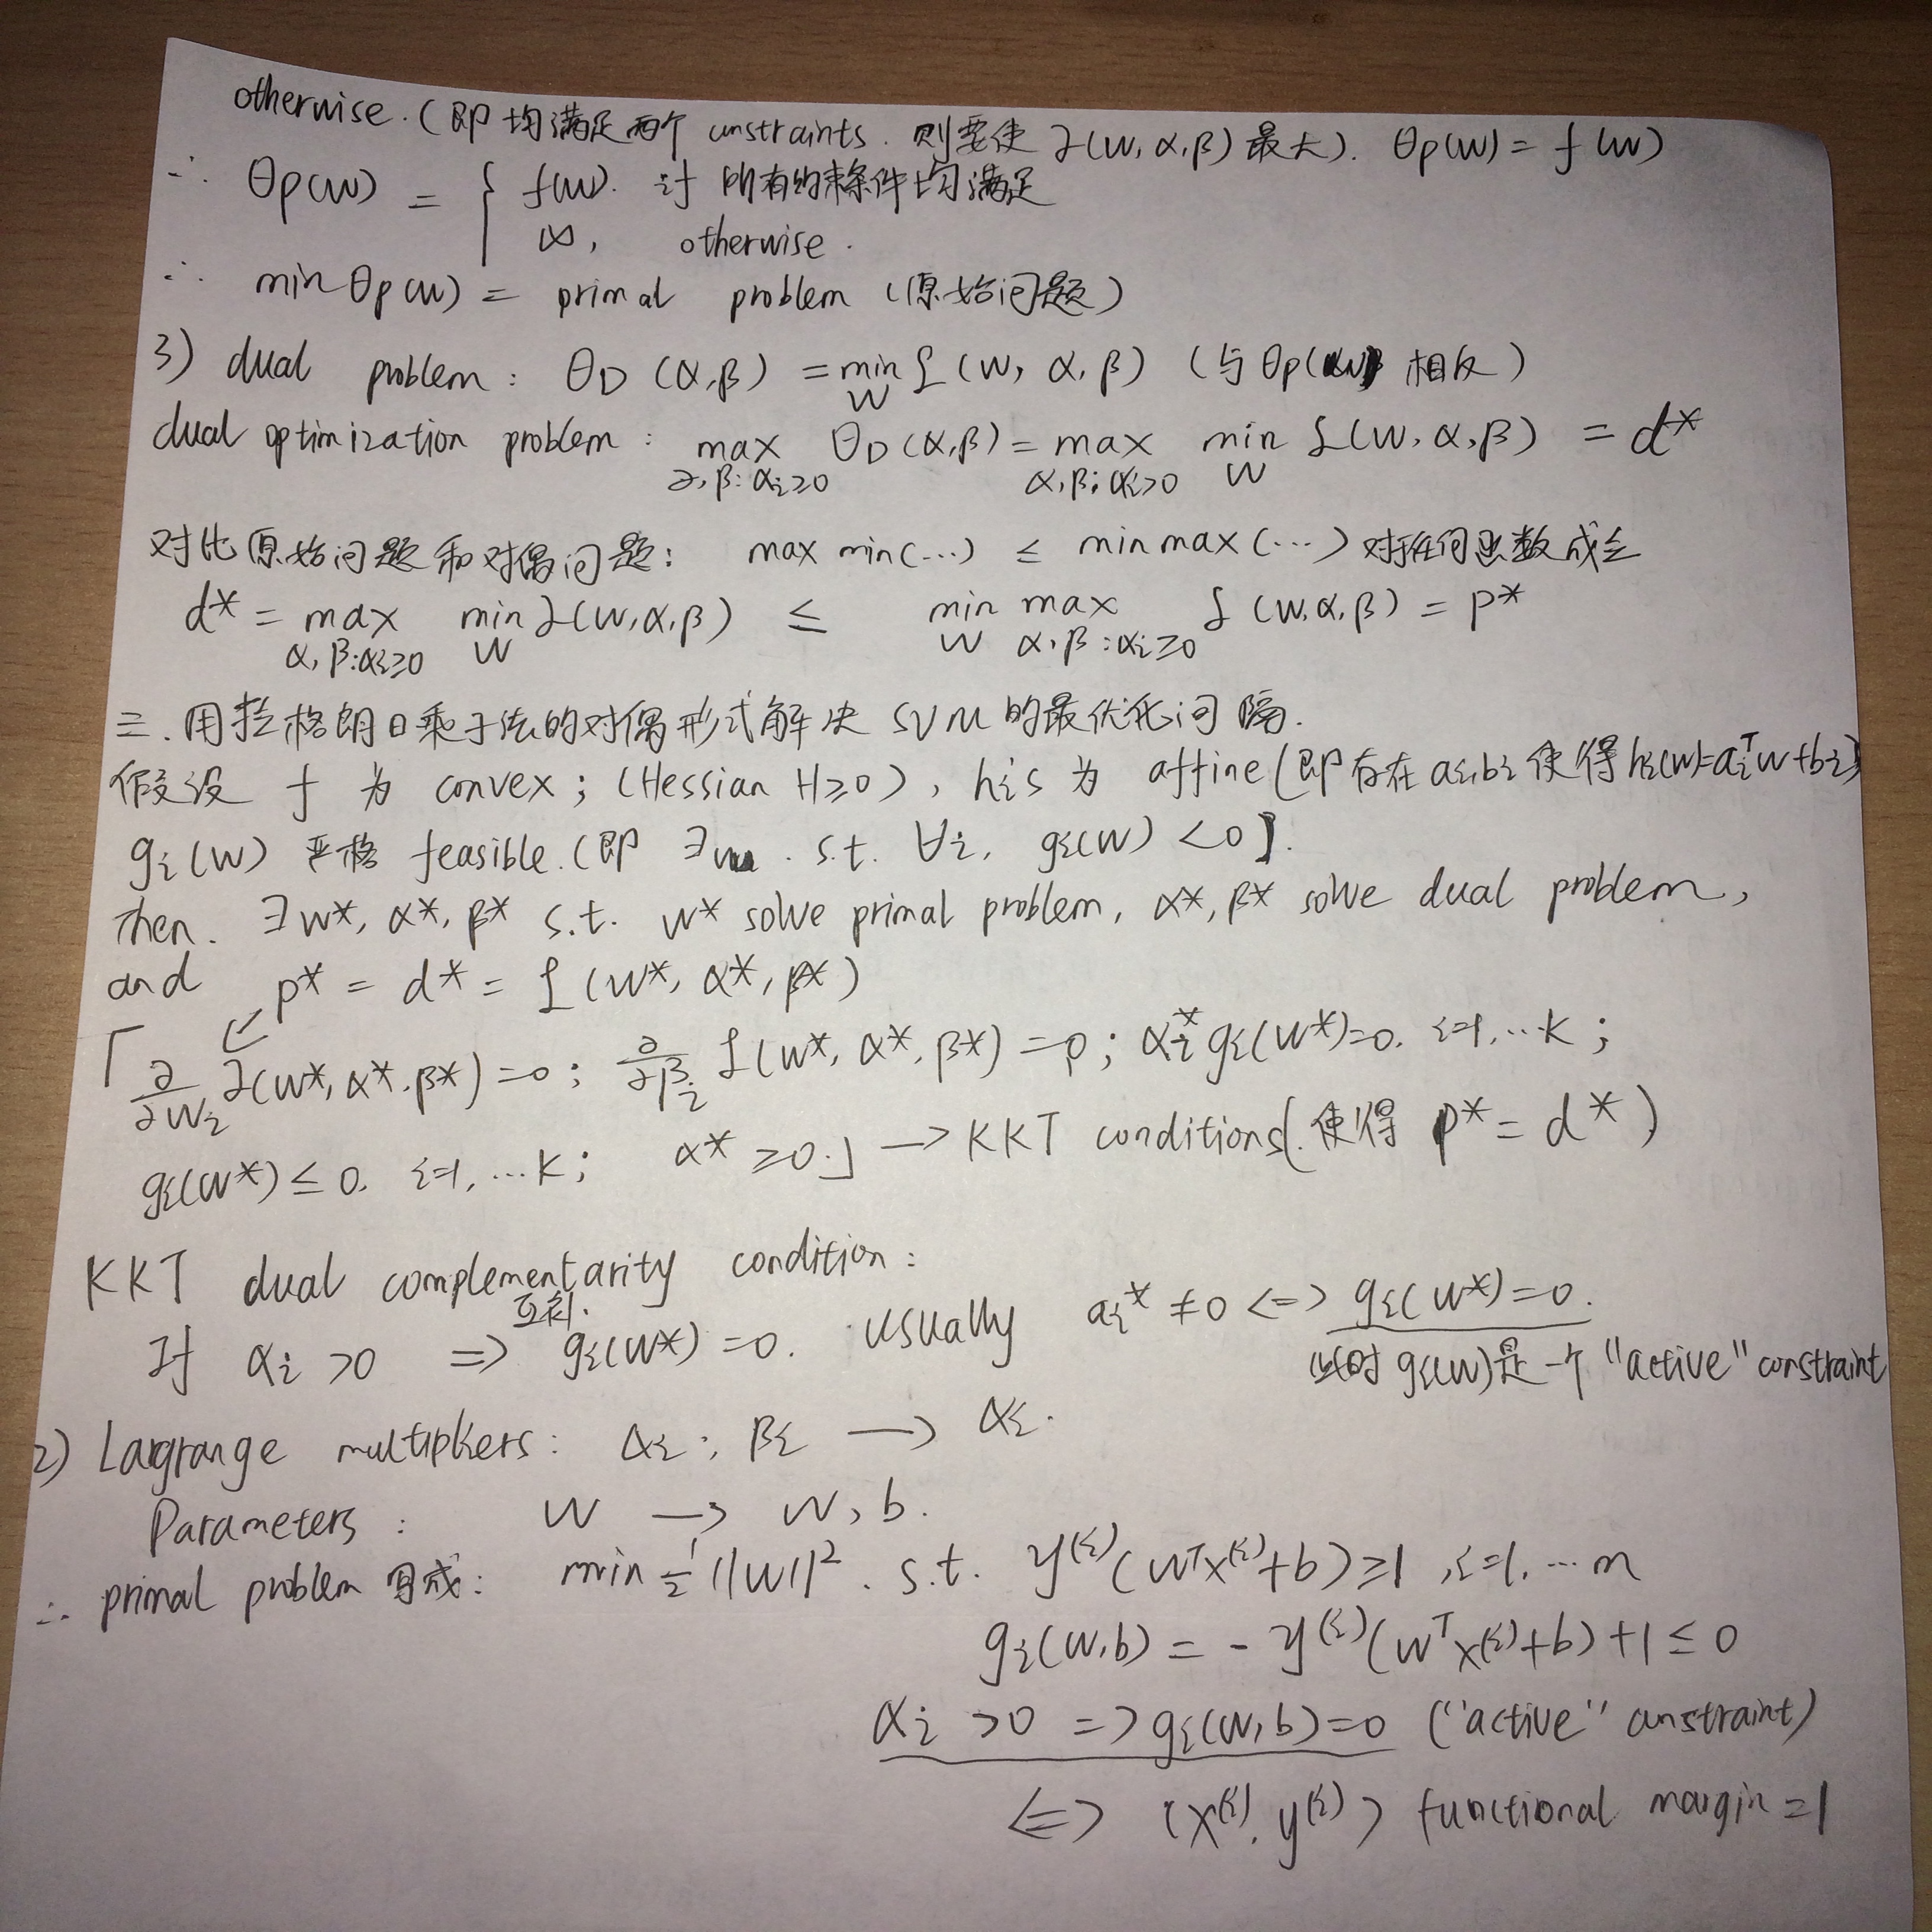 otherwise.(即均满足两个 constraints. 则要使 L(w,α,β) 最大). θp(w) = f(w)
∴ θp(w) = { f(w). if 所有约束条件均满足
∞, otherwise.
∴ min θp(w) = primal problem (原始问题)
3) dual problem: θD (α,β) = min L (w, α, β) (与 θp(w) 相反)
w
dual optimization problem: max θD (α,β) = max min L(w, α, β) = d*
α,β:αi≥0 α,β:αi>0 w
对比原始问题和对偶问题: max min(...) ≤ min max (...) 对任何函数成立
d* = max min L(w,α,β) ≤ min max L (w,α,β) = p*
α,β:αi≥0 w w α,β:αi≥0
三.用拉格朗日乘子法的对偶形式解决 SVM 的最优化间隔.
假设 f 为 convex; (Hessian H≥0), hi's 为 affine (即存在 ai,bi 使得 hi(w)=aiᵀw+bi)
gi(w) 严格 feasible.(即 ∃w. s.t. ∀i, gi(w) <0).
then. ∃w*, α*, β* s.t. w* solve primal problem, α*, β* solve dual problem,
and p* = d* = L (w*, α*, β*)
「 ∂/∂wi L(w*, α*, β*) = 0; ∂/∂βi L(w*, α*, β*) = 0; αi* gi(w*)=0. i=1,...k;
gi(w*) ≤ 0. i=1,...k; α* ≥0.」 → KKT conditions(.使得 p* = d*)
KKT dual complementarity condition:
互补.
if αi >0 => gi(w*) =0. usually ai* ≠0 <=> gi(w*)=0.
此时 gi(w)是一个 "active" constraint
2) Lagrange multipliers: αi; βi → αi.
Parameters: w → w, b.
∴ primal problem 写成: min ½ ||w||². s.t. y⁽ⁱ⁾(wᵀx⁽ⁱ⁾+b) ≥1, i=1,...m
gi(w,b) = - y⁽ⁱ⁾(wᵀx⁽ⁱ⁾+b) +1 ≤ 0
αi >0 => gi(w,b)=0 ("active" constraint)
<=> (x⁽ⁱ⁾, y⁽ⁱ⁾) functional margin =1